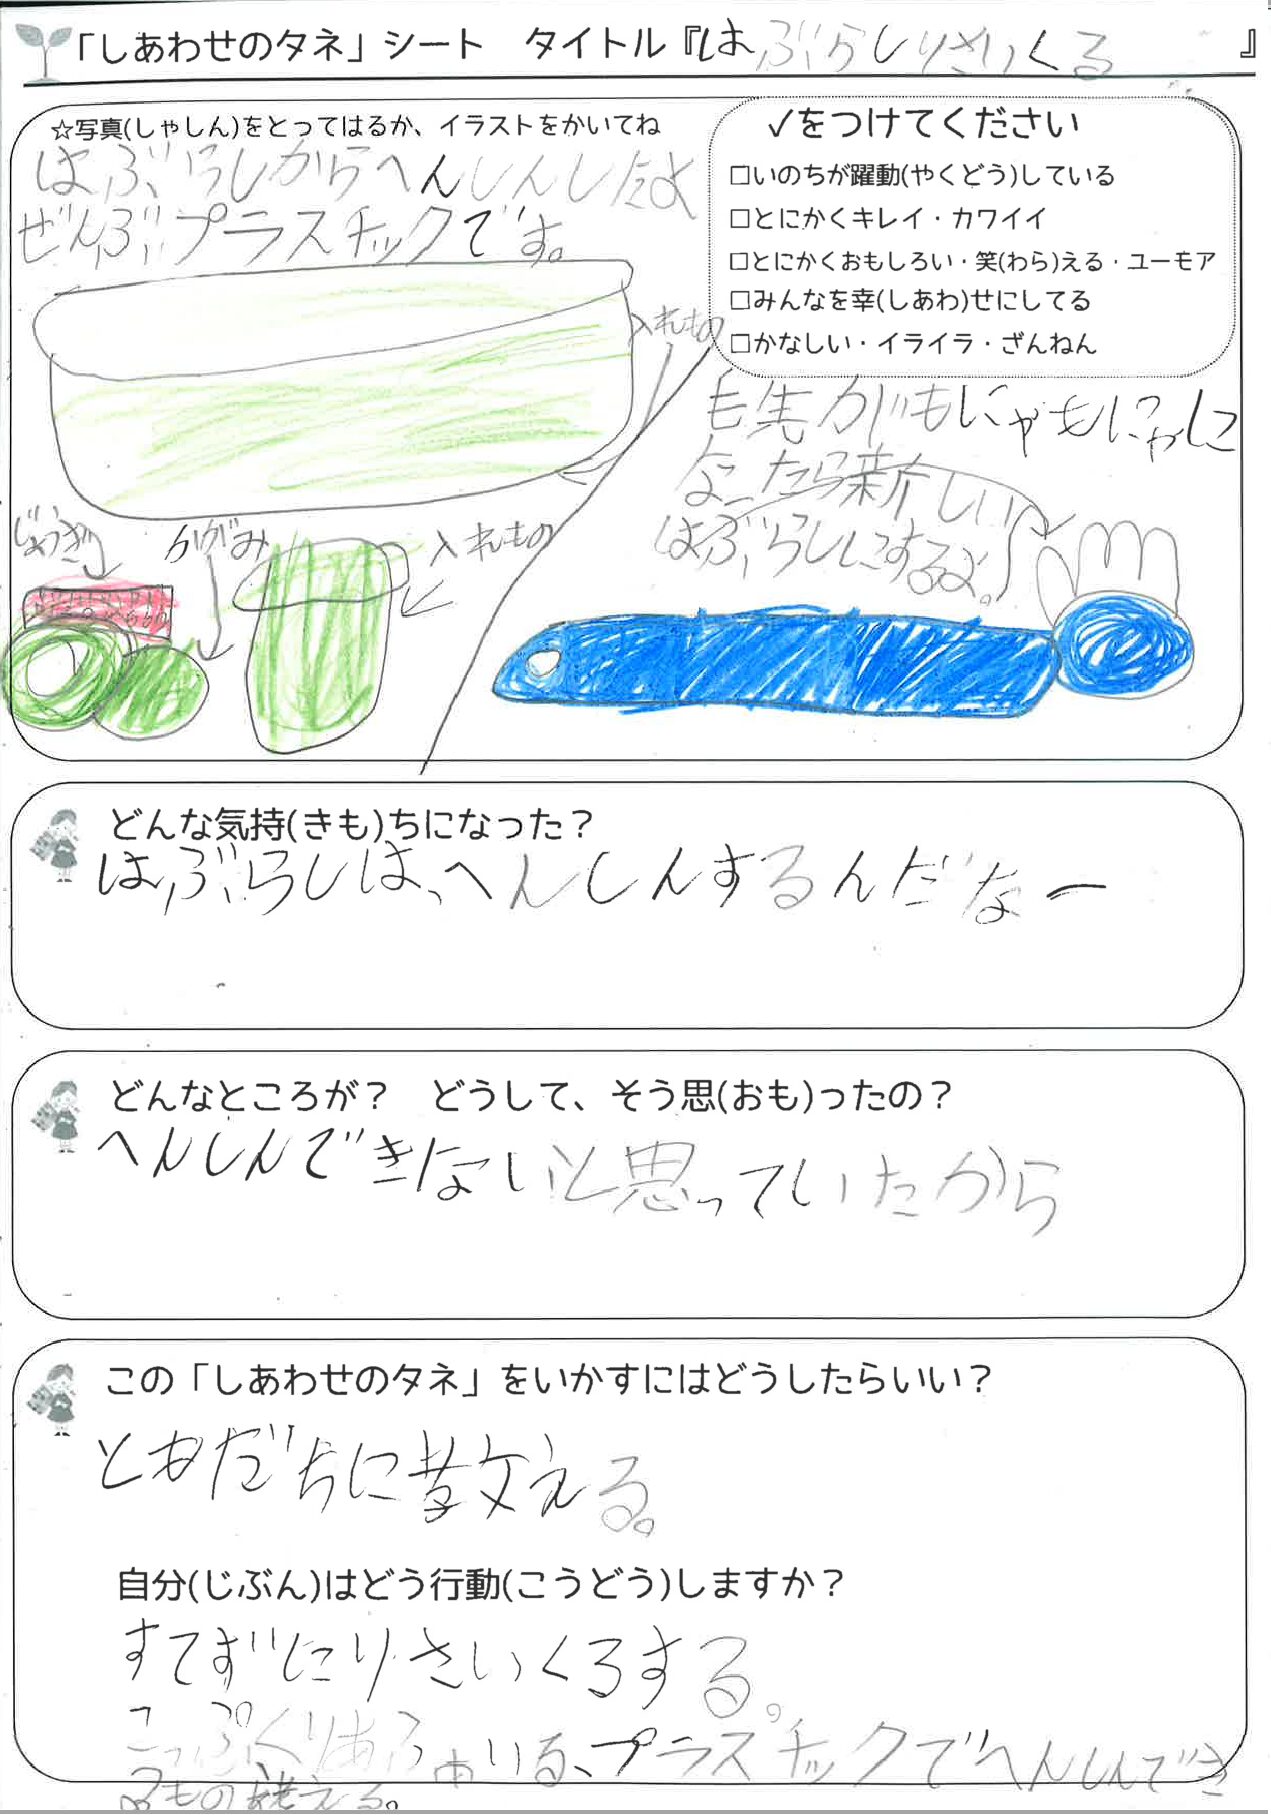 「しあわせのタネ」シート　タイトル『はぶらしりさいくる』
☆写真(しゃしん)をとってはるか、イラストをかいてね
はぶらしからへんしんしたよ
ぜんぶプラスチックです。
✓をつけてください
□いのちが躍動(やくどう)している
□とにかくキレイ・カワイイ
□とにかくおもしろい・笑(わら)える・ユーモア
□みんなを幸(しあわ)せにしてる
□かなしい・イライラ・ざんねん
入れもの
毛先がもにゃもにゃに
なったら新しい
はぶらしにするよ。
じょうぎ
かがみ
入れもの
どんな気持(きも)ちになった？
はぶらしは、へんしんするんだなー
どんなところが？　どうして、そう思(おも)ったの？
へんしんできないと思っていたから
この「しあわせのタネ」をいかすにはどうしたらいい？
ともだちに教える。
自分(じぶん)はどう行動(こうどう)しますか？
すてずにりさいくるする。
こっぷくりあふぁいる、プラスチックでへんしんでき
るもの考える。